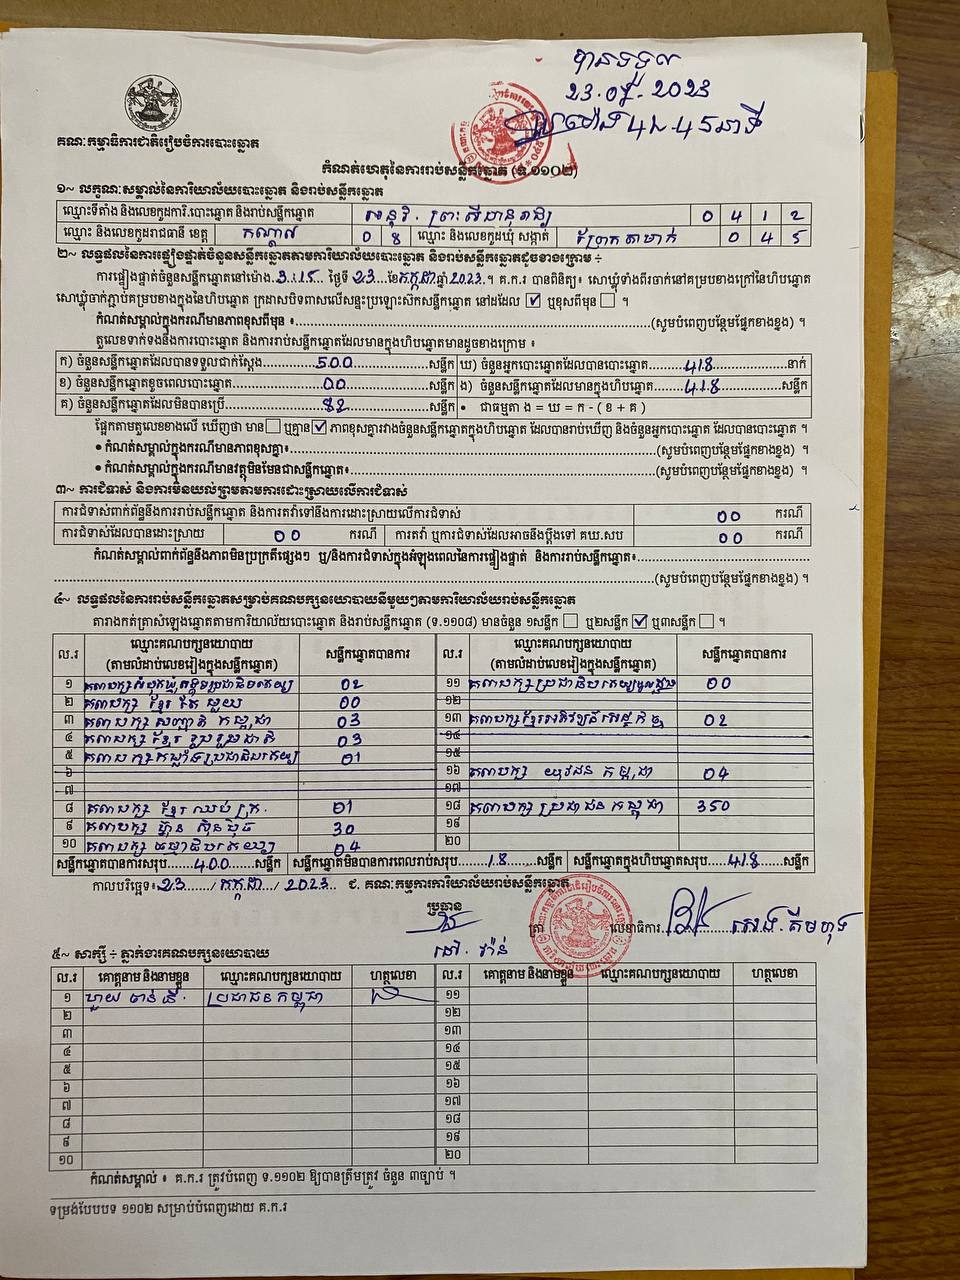 បានទទួល
23.07.2023
ម៉ោង 4ដ.45នាទី
គណៈកម្មាធិការជាតិរៀបចំការបោះឆ្នោត
កំណត់ហេតុនៃការរាប់សន្លឹកឆ្នោត (ទ.១១០២)
១~ លក្ខណៈសម្គាល់នៃការិយាល័យបោះឆ្នោត និងរាប់សន្លឹកឆ្នោត
ឈ្មោះទីតាំង និងលេខកូដការិ.បោះឆ្នោត និងរាប់សន្លឹកឆ្នោត អនុវិ. ព្រះសីហនុរាជ្យ 0 4 1 2
ឈ្មោះ និងលេខកូដរាជធានី ខេត្ត កណ្តាល 0 8 ឈ្មោះ និងលេខកូដឃុំ សង្កាត់ ព្រែកតាមាក់ 0 4 5
២~ លទ្ធផលនៃការផ្ទៀងផ្ទាត់ចំនួនសន្លឹកឆ្នោតតាមការិយាល័យបោះឆ្នោត និងរាប់សន្លឹកឆ្នោតដូចខាងក្រោម ÷
ការផ្ទៀងផ្ទាត់ចំនួនសន្លឹកឆ្នោតនៅម៉ោង 3:15 ថ្ងៃទី 23 ខែ កក្កដា ឆ្នាំ 2023 ។ គ.ក.រ បានពិនិត្យ៖ សោឃ្លុំទាំងពីរចាក់នៅគម្របខាងក្រៅនៃហិបឆ្នោត
សោឃ្លុំចាក់ភ្ជាប់គម្របខាងក្នុងនៃហិបឆ្នោត ក្រដាសបិទពាសលើសន្ទះប្រឡោះសឹកសន្លឹកឆ្នោត នៅដដែល ☑ ឬខុសពីមុន ☐ ។
កំណត់សម្គាល់ក្នុងករណីមានភាពខុសពីមុន ៖ (សូមបំពេញបន្ថែមផ្នែកខាងខ្នង) ។
តួលេខទាក់ទងនឹងការបោះឆ្នោត និងការរាប់សន្លឹកឆ្នោតដែលមានក្នុងហិបឆ្នោតមានដូចខាងក្រោម ៖
ក) ចំនួនសន្លឹកឆ្នោតដែលបានទទួលជាក់ស្តែង 500 សន្លឹក ឃ) ចំនួនអ្នកបោះឆ្នោតដែលបានបោះឆ្នោត 418 នាក់
ខ) ចំនួនសន្លឹកឆ្នោតខូចពេលបោះឆ្នោត 00 សន្លឹក ង) ចំនួនសន្លឹកឆ្នោតដែលមានក្នុងហិបឆ្នោត 418 សន្លឹក
គ) ចំនួនសន្លឹកឆ្នោតដែលមិនបានប្រើ 82 សន្លឹក • ជាធម្មតា ង = ឃ = ក - ( ខ + គ )
ផ្អែកតាមតួលេខខាងលើ ឃើញថា មាន ☐ ឬគ្មាន ☑ ភាពខុសគ្នារវាងចំនួនសន្លឹកឆ្នោតក្នុងហិបឆ្នោត ដែលបានរាប់ឃើញ និងចំនួនអ្នកបោះឆ្នោត ដែលបានបោះឆ្នោត ។
• កំណត់សម្គាល់ក្នុងករណីមានភាពខុសគ្នា៖ (សូមបំពេញបន្ថែមផ្នែកខាងខ្នង) ។
• កំណត់សម្គាល់ក្នុងករណីមានវត្ថុមិនមែនជាសន្លឹកឆ្នោត៖ (សូមបំពេញបន្ថែមផ្នែកខាងខ្នង) ។
៣~ ការជំទាស់ និងការមិនយល់ព្រមតាមការដោះស្រាយលើការជំទាស់
ការជំទាស់ពាក់ព័ន្ធនឹងការរាប់សន្លឹកឆ្នោត និងការតវ៉ាទៅនឹងការដោះស្រាយលើការជំទាស់ 00 ករណី
ការជំទាស់ដែលបានដោះស្រាយ 00 ករណី ការតវ៉ា ឬការជំទាស់ដែលអាចនឹងប្តឹងទៅ គឃ.សប 00 ករណី
កំណត់សម្គាល់ពាក់ព័ន្ធនឹងភាពមិនប្រក្រតីផ្សេងៗ ឬ/និងការជំទាស់ក្នុងអំឡុងពេលនៃការផ្ទៀងផ្ទាត់ និងការរាប់សន្លឹកឆ្នោត៖
(សូមបំពេញបន្ថែមផ្នែកខាងខ្នង) ។
៤~ លទ្ធផលនៃការរាប់សន្លឹកឆ្នោតសម្រាប់គណបក្សនយោបាយនីមួយៗតាមការិយាល័យរាប់សន្លឹកឆ្នោត
តារាងកត់ត្រាសំឡេងឆ្នោតតាមការិយាល័យបោះឆ្នោត និងរាប់សន្លឹកឆ្នោត (ទ.១១០៨) មានចំនួន ១សន្លឹក ☐ ឬ២សន្លឹក ☑ ឬ៣សន្លឹក ☐ ។
ល.រ ឈ្មោះគណបក្សនយោបាយ (តាមលំដាប់លេខរៀងក្នុងសន្លឹកឆ្នោត) សន្លឹកឆ្នោតបានការ ល.រ ឈ្មោះគណបក្សនយោបាយ (តាមលំដាប់លេខរៀងក្នុងសន្លឹកឆ្នោត) សន្លឹកឆ្នោតបានការ
១ គណបក្សសំបុកឃ្មុំសង្គមប្រជាធិបតេយ្យ 02 ១១ គណបក្សប្រជាធិបតេយ្យមូលដ្ឋាន 00
២ គណបក្ស ខ្មែរ តែ មួយ 00 ១២
៣ គណបក្ស សញ្ជាតិ កម្ពុជា 03 ១៣ គណបក្សខ្មែរអភិវឌ្ឍន៍សេដ្ឋកិច្ច 02
៤ គណបក្ស ខ្មែរ រួបរួមជាតិ 03 ១៤
៥ គណបក្ស កម្លាំងប្រជាធិបតេយ្យ 01 ១៥
៦ ១៦ គណបក្ស យុវជន កម្ពុជា 04
៧ ១៧
៨ គណបក្ស ខ្មែរ ឈប់ ក្រ 01 ១៨ គណបក្ស ប្រជាជន កម្ពុជា 350
៩ គណបក្ស ហ៊្វុន ស៊ិនប៉ិច 30 ១៩
១០ គណបក្ស ធម្មាធិបតេយ្យ 04 ២០
សន្លឹកឆ្នោតបានការសរុប 400 សន្លឹក សន្លឹកឆ្នោតមិនបានការពេលរាប់សរុប 18 សន្លឹក សន្លឹកឆ្នោតក្នុងហិបឆ្នោតសរុប 418 សន្លឹក
កាលបរិច្ឆេទ៖ 23 / កក្កដា / 2023 ជ. គណៈកម្មការការិយាល័យរាប់សន្លឹកឆ្នោត
ប្រធាន
ត្រា លេខាធិការ សេង. គឹមហុង
៥~ សាក្សី ÷ ភ្នាក់ងារគណបក្សនយោបាយ
ល.រ គោត្តនាម និងនាមខ្លួន ឈ្មោះគណបក្សនយោបាយ ហត្ថលេខា ល.រ គោត្តនាម និងនាមខ្លួន ឈ្មោះគណបក្សនយោបាយ ហត្ថលេខា
១ ប្រជាជនកម្ពុជា ១១
២ ១២
៣ ១៣
៤ ១៤
៥ ១៥
៦ ១៦
៧ ១៧
៨ ១៨
៩ ១៩
១០ ២០
កំណត់សម្គាល់ ៖ គ.ក.រ ត្រូវបំពេញ ទ.១១០២ ឱ្យបានត្រឹមត្រូវ ចំនួន ៣ច្បាប់ ។
ទម្រង់បែបបទ ១១០២ សម្រាប់បំពេញដោយ គ.ក.រ